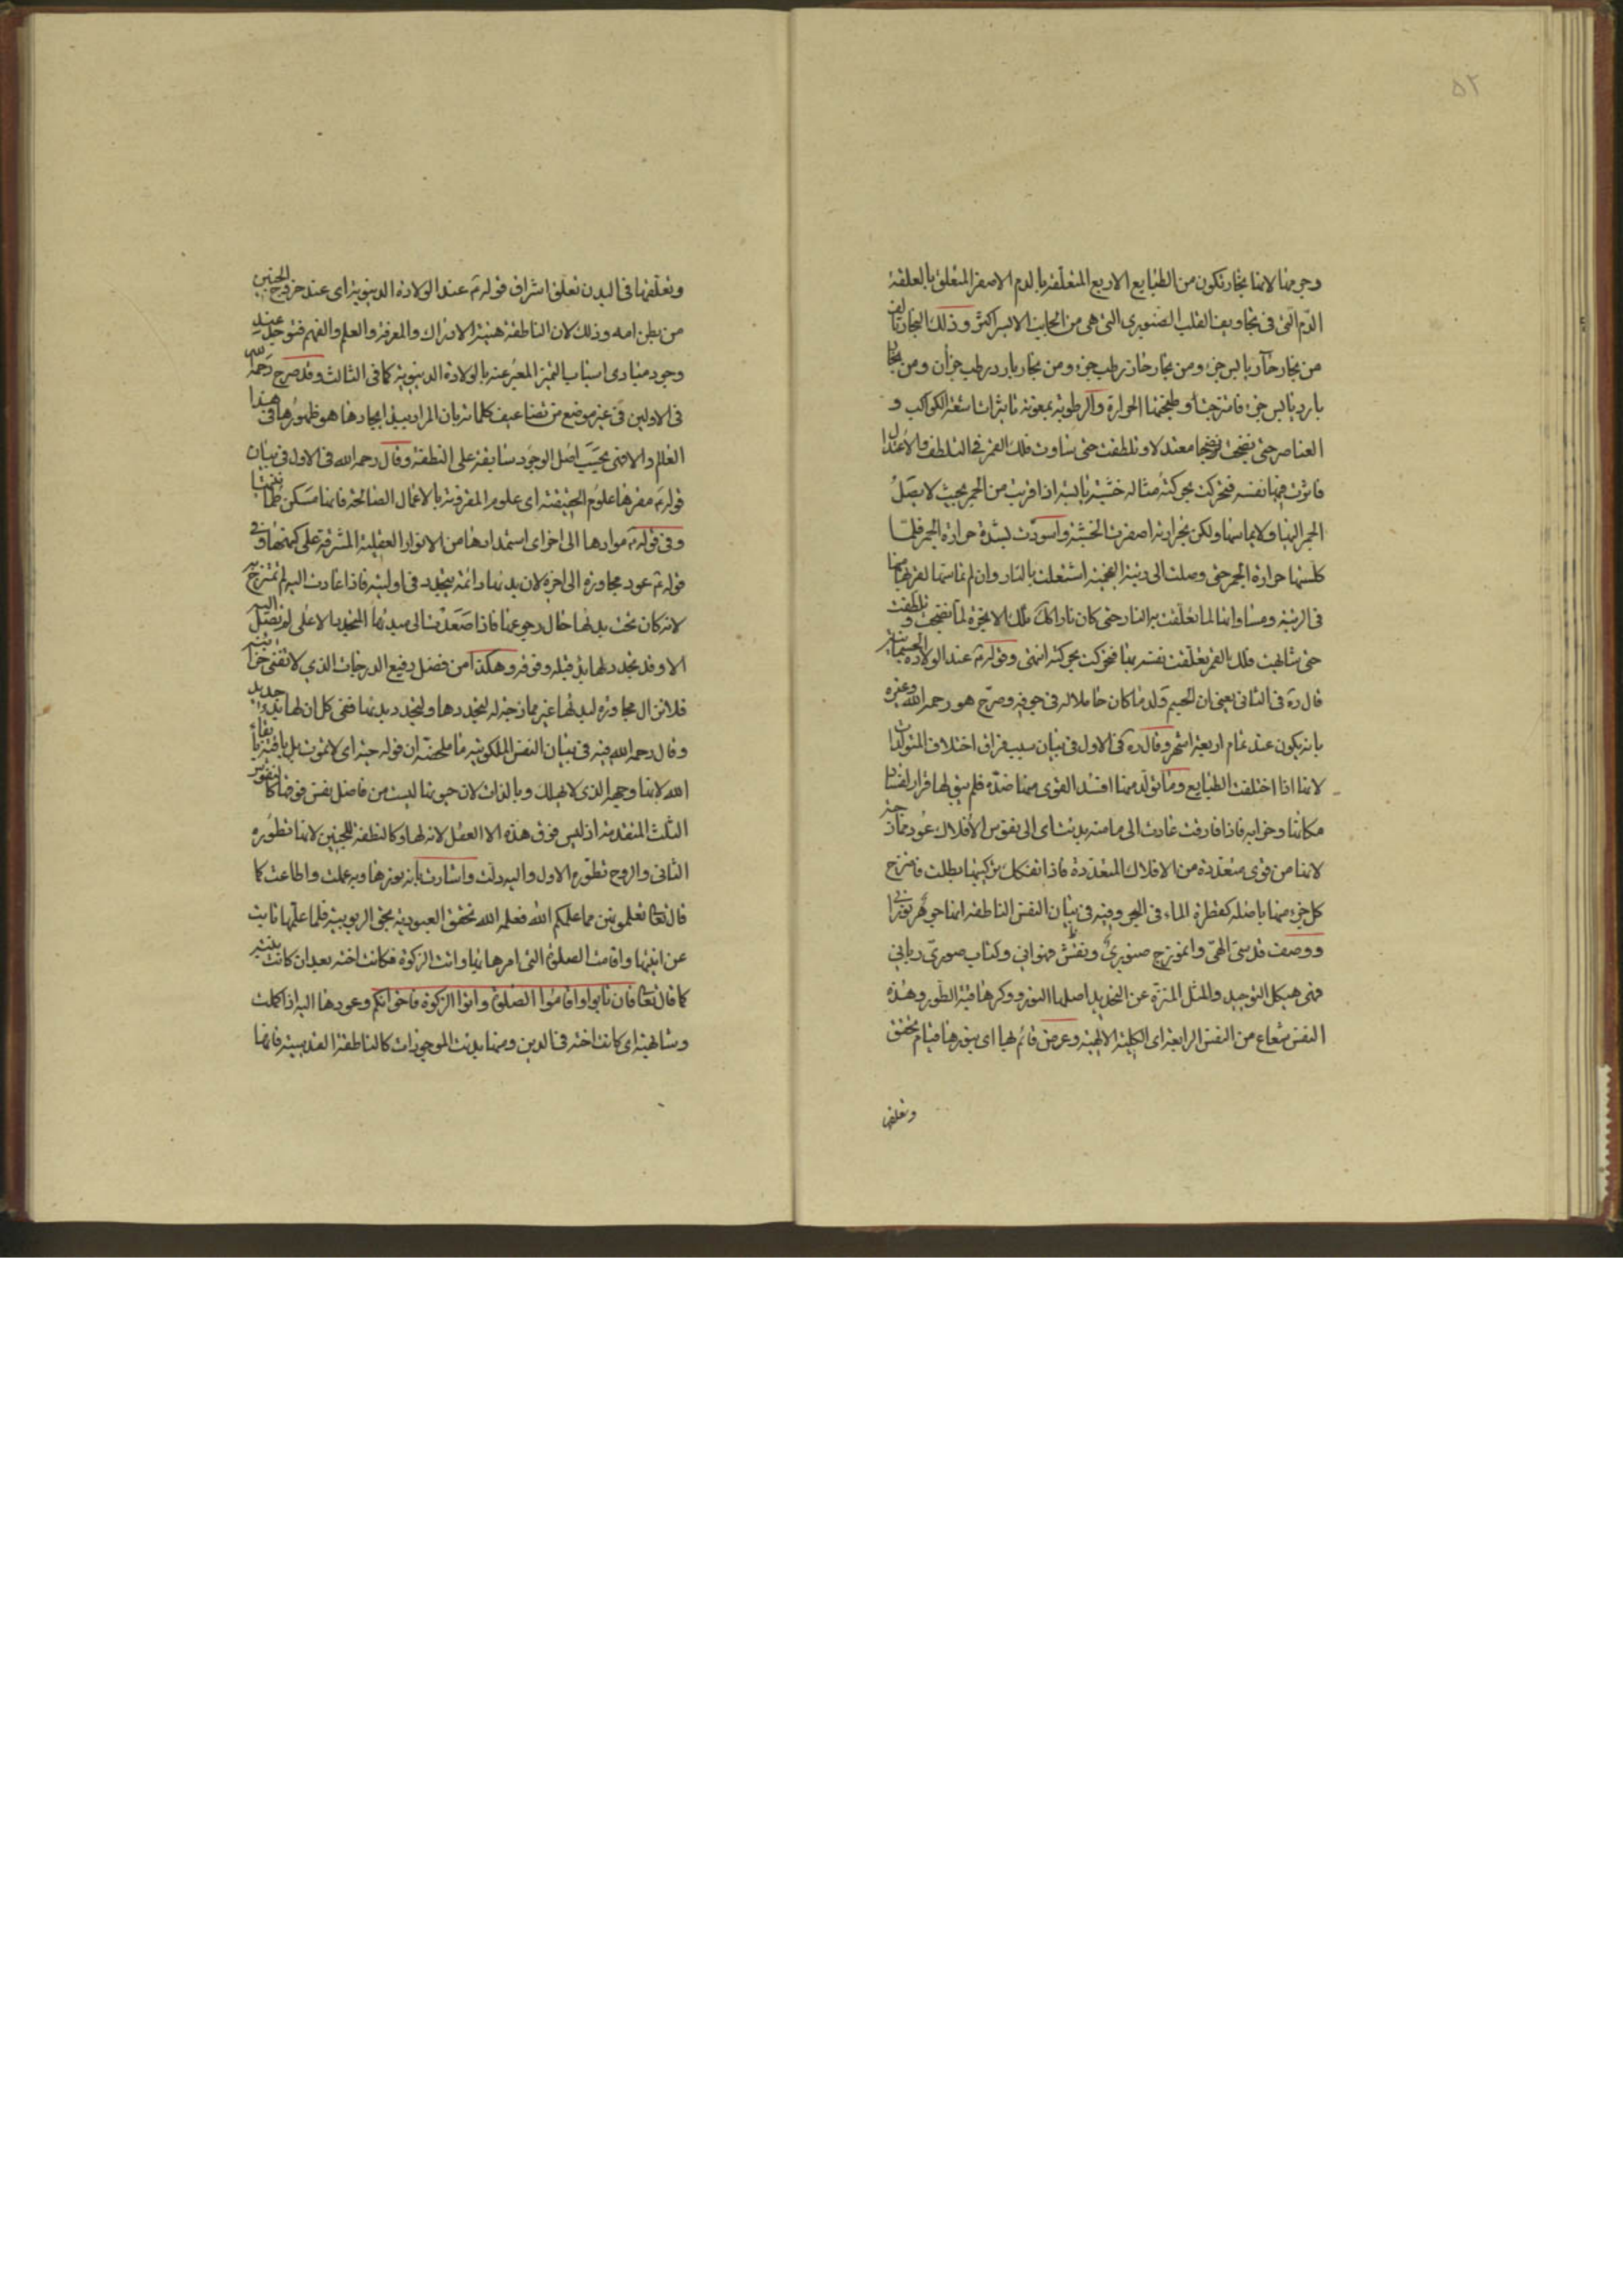 ٥٢
وحي منها لانها بخار تكون من الطبايع الاربع المتعلقة بالدم الاصفر المتعلق بالعلقة
الدم التي في تجاويف القلب الصنوبري التي هي من الجانب الايسر اكثر وذلك البخار تالف
من بخار حار يابس جزء ومن بخار حار رطب جزء ومن بخار بارد رطب جزأن ومن بخار
بارد يابس جزء فامتزجتا وطبختها الحرارة والرطوبة بمعونة تاثيرات اشعة الكواكب و
العناصر حتى نضجت نضجا معتدلا وتلطفت حتى ساوت فلك القمر في التلطف والاعتدال
فاثرت فيها نفسه فتحركت بحركته مثاله خشبة يابسة اذا قربت من الجمر بحيث لا يصل
الجمر اليها ولا يماسها ولكن بحرارته اصفرت الخشبة واسودت بشدة حرارة الجمر فلما
كلستها حرارة الجمر حتى وصلت الى رتبة الفحمية اشتعلت بالنار وان لم تماسها لقربها منها
في الرتبة ومساواتها لما تعلقت به النار حتى كان نارا كك تلك الابخرة لما نضجت وتلطفت
حتى شابهت فلك القمر تعلقت نفسه بها فتحركت بحركته انتهى وقوله ع عند الولادة الجسمانية
قال ره في الثاني يعني ان الجسم ولدها كان حاملا له في جوفه وصرح هو رحمه الله وغيره
بانه يكون عند تمام اربعة اشهر وقال ره في الاول في بيان سبب فراق اختلاف المتولدات
لانها اذا اختلفت الطبايع وما تولد منها افسد القوى منها ضده فلم يبق لها قرار لفساد
مكانها وخرابه فاذا فارقت عادت الى ما منه بدئت اي الى نفوس الافلاك عود ممازجة
لانها من قوى متعددة من الافلاك المتعددة فاذا تفكك تركيبها بطلت فامتزج
كل جزء منها باصله كقطرة الماء في البحر وفيه في بيان النفس الناطقة انها جوهر نوراني
ووصف قدسي الهي وانموذج صنوبري ونقش فهواني وكتاب صوري رباني
فهي هيكل التوحيد والمثل المنزه عن التحديد اصلها النور ووكرها قبة الطور وهذه
النفس شعاع من النفس الرابعة اي الكلية الالهية وعرض قائم بها اي بنورها قيام تحقق
وتعلقها
وتعلقها في البدن تعلق اشراق قوله ع عند الولادة الدنيوية اي عند خروج الجنين
من بطن امه وذلك لان الناطقة هيئة الادراك والمعرفة والعلم والفهم فتوجد عند
وجود مبادي اسباب التميز المعبر عنه بالولادة الدنيوية كما في الثالث وقد صرح رحمه الله
في الاولين في غير موضع من تضاعيف كلماته بان المراد بهذا ايجادها هو ظهورها في هذا
العالم والا فهي بحسب اصل الوجود سابقة على النطفة وقال رحمه الله في الاول في بيان
قوله ع مقرها علوم الحقيقة اي علوم المقرونة بالاعمال الصالحة فانها مسكن طمأنينتها
وفي قوله ع موادها الى اخر اي استمدادها من الانوار العقلية المشرقة على كينونتها وفي
قوله ع عود مجاورة الى اخره لان بدئها دائمة يتجدد في اوليته فاذا عادت اليه لم تمتزج
لانه كان تحت بدئها حال رجوعها فاذا صعدت الى مبدئها التجديد الاعلى لم تصل اليه
الا وقد تجدد لها بدء قبله وفوقه وهكذا من فضل رفيع الدرجات الذي لا تفنى خزائنه
فلا تزال مجاورة لبدئها غير ممازجة له لتجددها ولتجدد بدئها ففي كل ان لها بدء جديد
وقال رحمه الله فيه في بيان النفس الملكوتية ما ملخصه ان قوله حية اي لا تموت بل باقية ببقاء
الله لانها وجهه الذي لا يهلك وبالذات لان حيوتها ليست من فاضل نفس فوقها كالنفوس
الثلث المتقدمة اذ ليس فوق هذه الا العقل لانه لها وكالنطفة للجنين لانها تطوره
الثاني والروح تطوره الاول واليه دلت واشارت بانه نورها وبه عملت واطاعت كما
قال تعا تعلمونهن مما علمكم الله فعلمه الله تحقق العبودية بحق الربوبية فلما علمها تابت
عن انيتها واقامت الصلوة التي امرها بها واتت الزكوة فكانت اخته بعد ان كانت بنته
كما قال تعا فان تابوا واقاموا الصلوة واتوا الزكوة فاخوانكم وعودها اليه اذا كملت
وشابهته اي كانت اخته في الدين ومنها بدئت الموجودات كالناطقة القدسية فانها